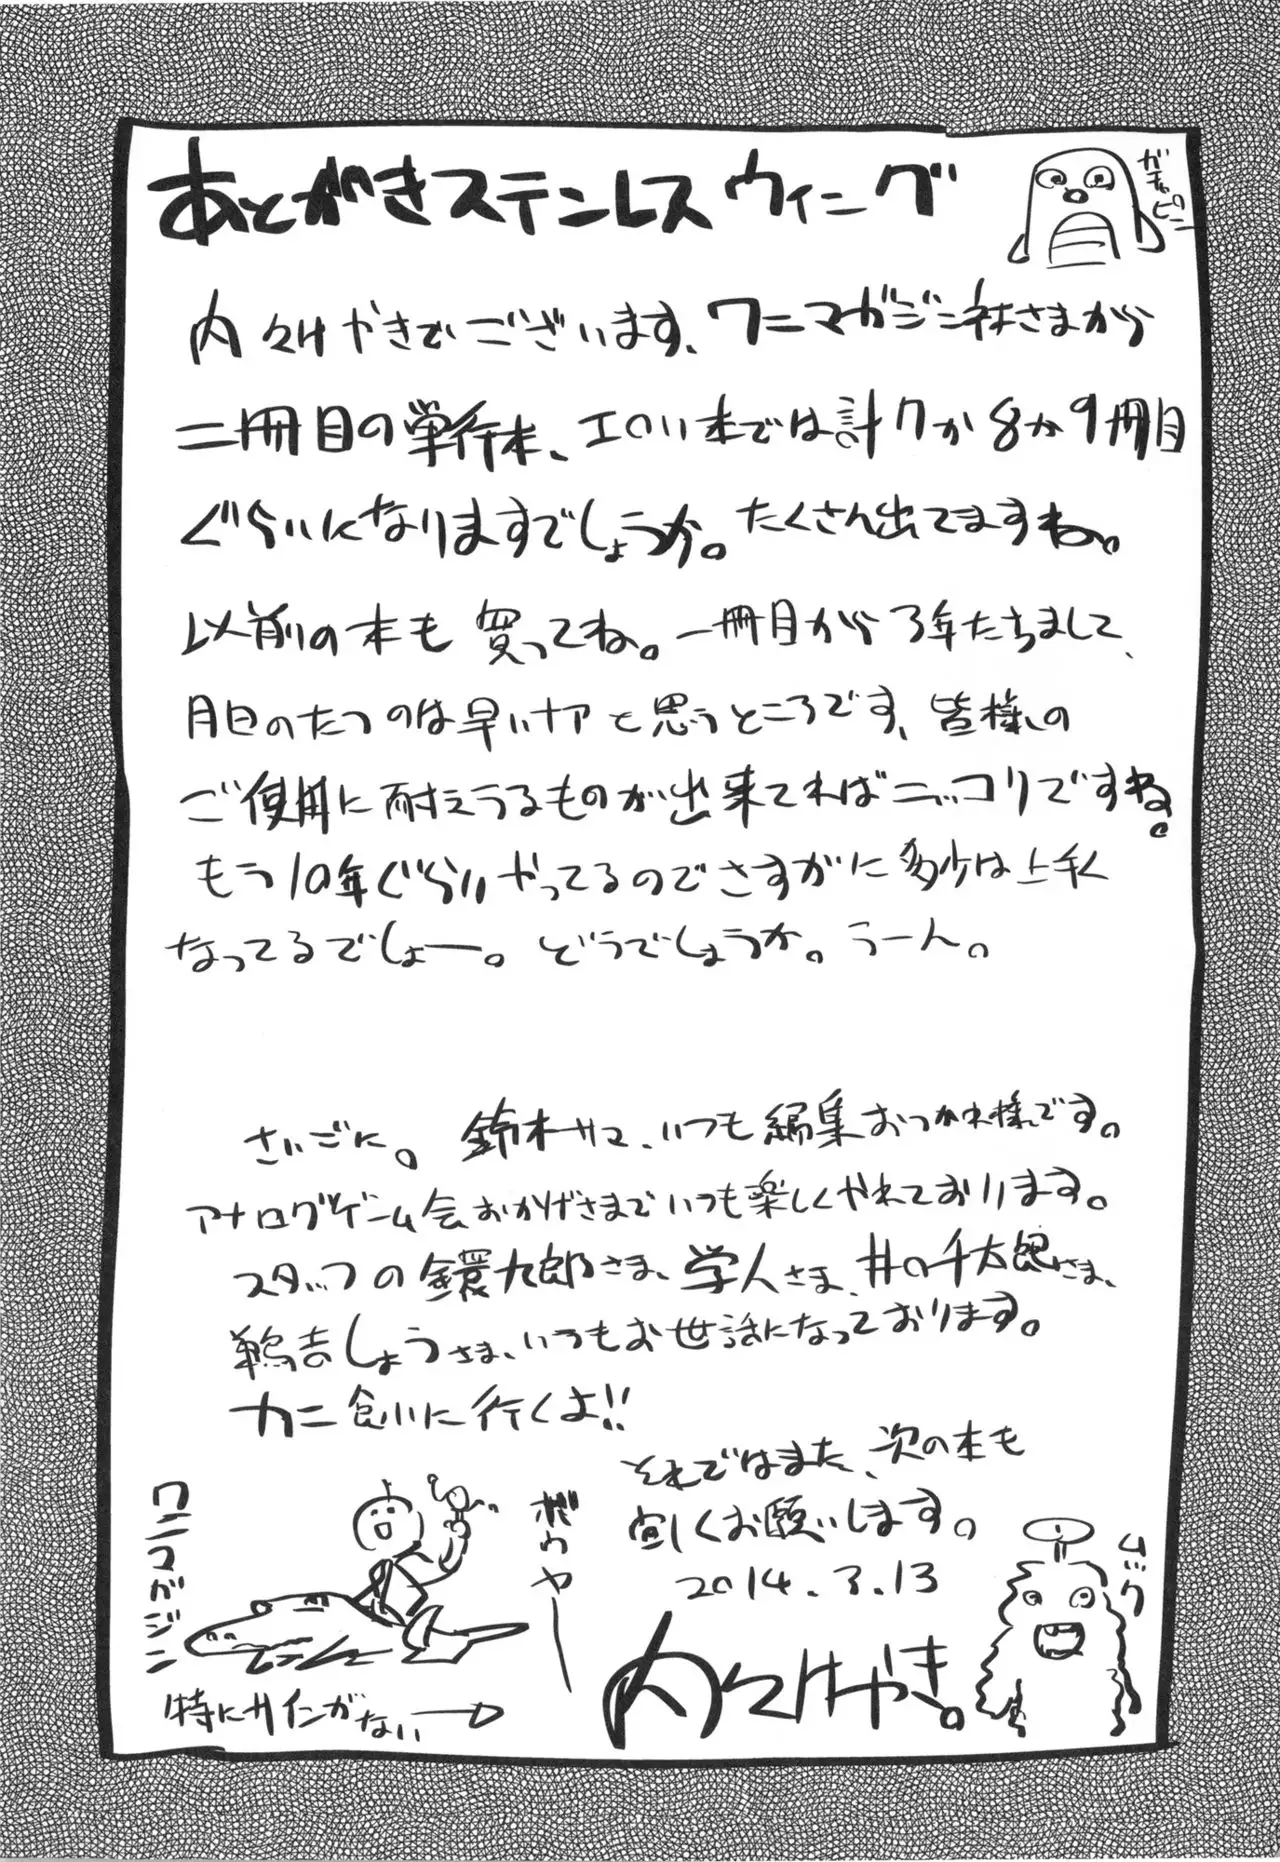 あとがきステンレスウィニング
ガチャピン
内々けやきでございます、ワニマガジン社さまから
二冊目の単行本、エロい本では計7か8か9冊目
ぐらいになりますでしょうか。たくさん出てますね。
以前の本も買ってね。一冊目から3年たちまして、
月日のたつのは早いナアと思うところです、皆様の
ご使用に耐えうるものが出来てればニッコリですね。
もう10年ぐらいやってるのでさすがに多少は上手く
なってるでしょー。どうでしょうか。うーん。
さいごに。鈴木サマ、いつも編集おつかれ様です。
アナログゲーム会おかげさまでいつも楽しくやれております。
スタッフの鐶九郎さま、学人さま、井の千太郎さま、
鶉吉しょうさま、いつもお世話になっております。
カニ食いに行くよ!!
それではまた、次の本も
宜しくお願いします。
2014.3.13
内々けやき。
ワニマガジン
ボウヤー
ムック
特にサインがない